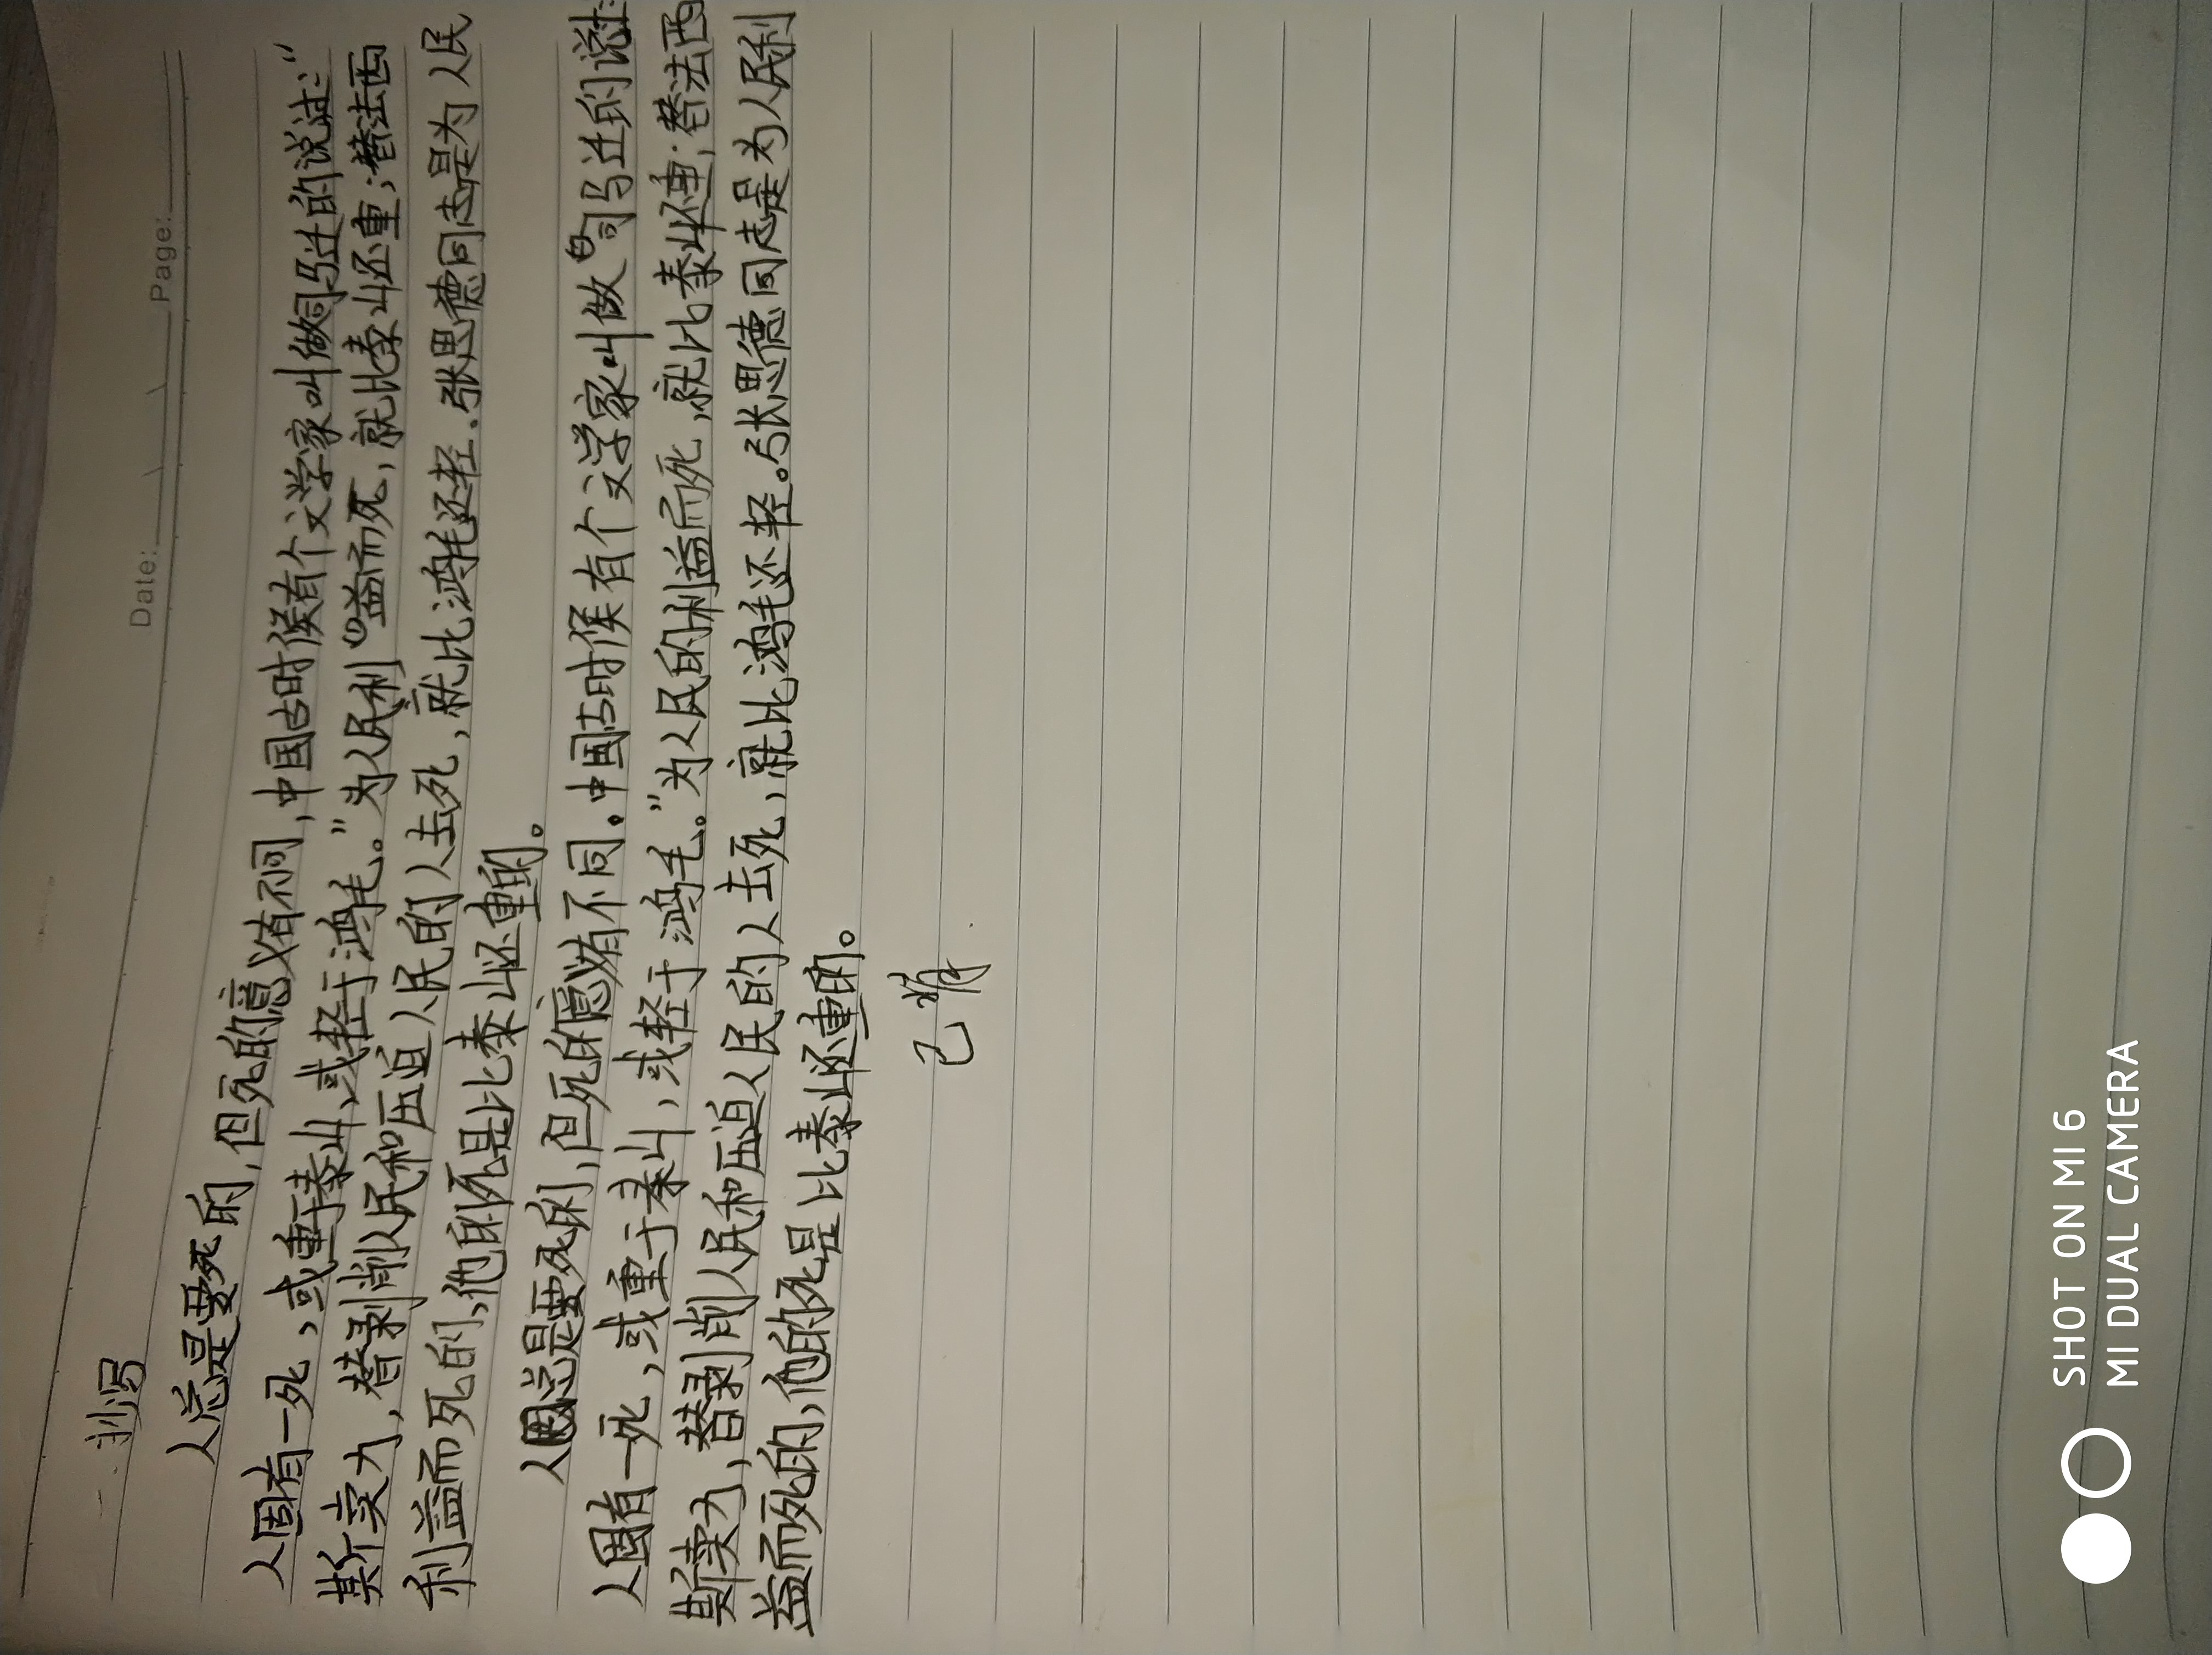 一.抄写
Date: \ \ Page:
人总是要死的,但死的意义有不同,中国古时候有个文学家叫做司马迁的说过:“
人固有一死,或重于泰山,或轻于鸿毛。”为人民利益而死,就比泰山还重;替法西
斯卖力,替剥削人民和压迫人民的人去死,就比鸿毛还轻.张思德同志是为人民
利益而死的,他的死是比泰山还重的。
人总是要死的,但死的意义有不同。中国古时候有个文学家叫做司马迁的说过:
人固有一死,或重于泰山,或轻于鸿毛。”为人民的利益而死,就比泰山还重;替法西
斯卖力,替剥削人民和压迫人民的人去死,就比鸿毛还轻。张思德同志是为人民利
益而死的,他的死是比泰山还重的。
已背.
SHOT ON MI 6
MI DUAL CAMERA